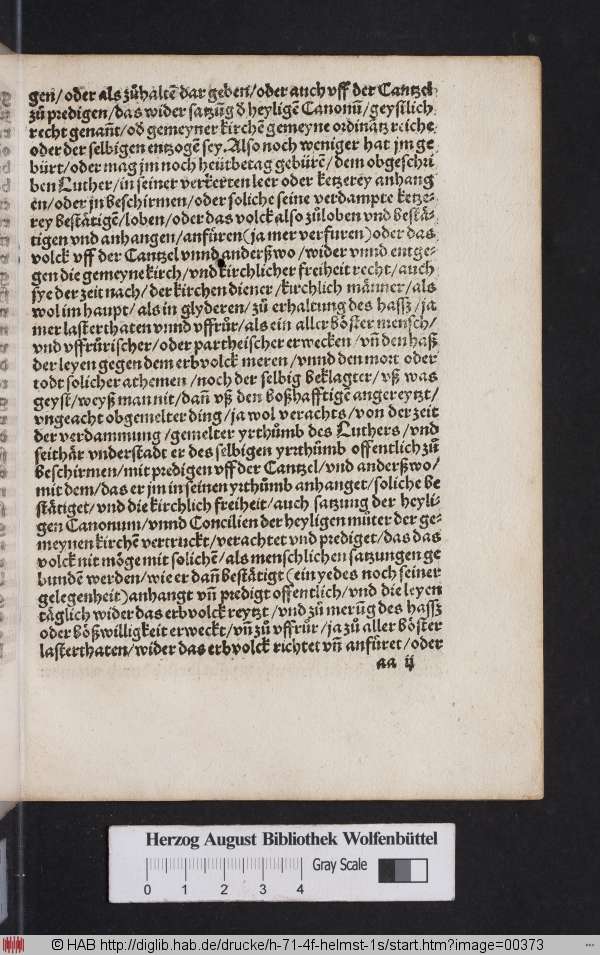 gen/oder als zůhaltē dar geben/oder auch vff der Cantzel
zů predigen/das wider satzūg ď heyligē Canonū/geystlich
recht genañt/oď gemeyner kirchē gemeyne ordinātz reiche
oder der selbigen entzogē sey. Also noch weniger hat jm ge
bürt/oder mag jm noch heütbetag gebürē/dem obgeschri
ben Luther/in seiner verkerten leer oder ketzerey anhang
en/oder jn beschirmen/oder soliche seine verdampte ketze⸗
rey bestätigē/loben/oder das volck also zůloben vnd bestä⸗
tigen vnd anhangen/anfüren (ja mer verfuren) oder das
volck vff der Cantzel vnnd anderßwo/wider vnnd entge⸗
gen die gemeyne kirch/vnd kirchlicher freiheit recht/auch
sye der zeit nach/der kirchen diener/kirchlich männer/als
wol im haupt/als in glyderen/zů erhaltung des hassz/ja
mer lasterthaten vnnd vffrůr/als ein aller böster mensch/
vnd vffrůrischer/oder partheischer erwecken/vñ den haß
der leyen gegen dem erbvolck meren/vnnd den mort oder
todt solicher athemen/noch der selbig beklagter/vß was
geyst/weyß man nit/dañ vß den boßhafftigē angereytzt/
vngeacht obgemelter ding/ja wol verachts/von der zeit
der verdammung/gemelter yrthůmb des Luthers/vnd
seithär vnderstadt er des selbigen yrthůmb offentlich zů
beschirmen/mit predigen vff der Cantzel/vnd anderßwo/
mit dem/das er jm in seinen yrthůmb anhanget/soliche be
stätiget/vnd die kirchlich freiheit/auch satzung der heyli⸗
gen Canonum/vnnd Concilien der heyligen můter der ge⸗
meynen kirchē vertruckt/verachtet vnd prediget/das das
volck nit möge mit solichē/als menschlichen satzungen ge
bundē werden/wie er dañ bestätigt (ein yedes noch seiner
gelegenheit) anhangt vñ predigt offentlich/vnd die leyen
täglich wider das erbvolck reytzt/vnd zů merūg des hassz
oder bößwilligkeit erweckt/vñ zů vffrůr/ja zů aller böster
lasterthaten/wider das erbvolck richtet vñ anfüret/oder
aa ij
Herzog August Bibliothek Wolfenbüttel
Gray Scale
0 1 2 3 4
© HAB http://diglib.hab.de/drucke/h-71-4f-helmst-1s/start.htm?image=00373